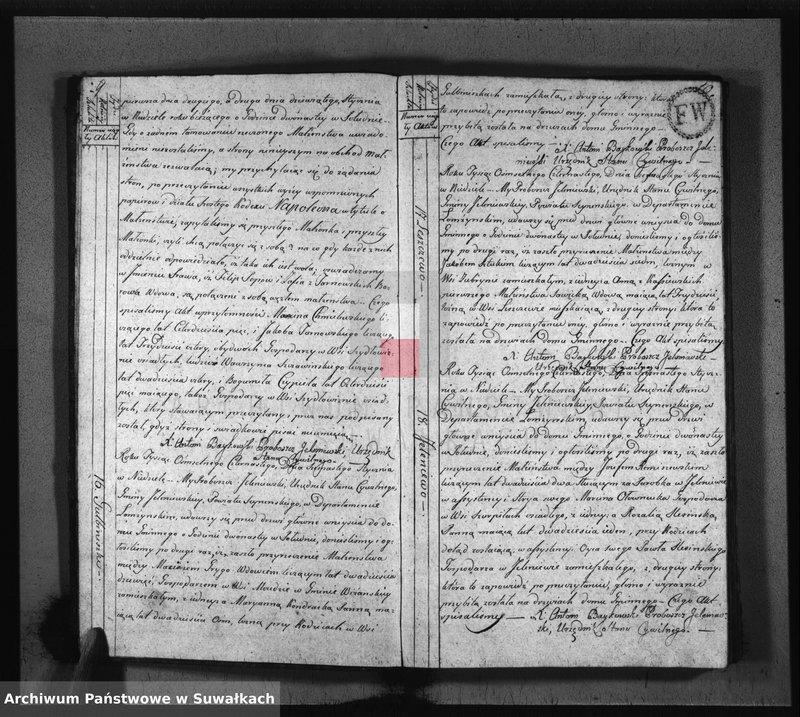 pierwsza dnia drugiego, a druga dnia dziewiątego, Stycznia
w Niedzielę roku bieżącego o Godzinie dwónastey w Południe
Gdy o żadnim tamowaniu rzeczonego Małżeństwa uwiado-
mieni niezostaliśmy, a strony niniejszym na obchod Mał-
żeństwa zezwalaią; my przychylaiąc się do żądania
stron, po przeczytaniu wszystkich wyżey wspomnionych
papierow i działu szóstego Kodexu Napoleona w tytule o
Małżeństwie; zapytaliśmy się przyszłego Małżonka i przyszłey
Małżonki, czyli chcą połączyć się z sobą? na co gdy każde z nich
oddzielnie odpowiedziało, iż taka ich iest wola;
w Imieniu Prawa, iż Filip i Zofia z Tarnowskich
Wdowa, są połączeni z sobą węzłem małżeństwa. Czego
spisaliśmy Akt w przytomności Marcina Chmielewskiego li-
czącego lat Czterdzieści pięć, i Jakoba Tarnowskiego liczącego
lat Trzydzieści cztery, obydwóch Gospodarzy w Wsi Szydłowi-
znie osiadłych, tudzież Wawrzyna liczącego
lat dwadzieścia cztery, i Bogumiła lat Czterdzieści
pięć maiącego, także Gospodarzy w Wsi Szydłowiznie osiad-
łych, który stawaiącym przeczytany, przez nas podpisany
został, gdyż strony i świadkowie pisać nieumieią.
X. Antoni Baykowski Proboszcz Jeleniewski, Urzędnik
Stanu Cywilnego
16 Gulbieniszki
Roku Tysiąc Ośmsetnego Czternastego, Dnia Szesnastego Stycznia
w Niedzielę. My Proboszcz Jeleniewski, Urzędnik Stanu Cywilnego,
Gminy Jeleniewskiey, Powiatu Seyneńskiego, w Departamencie
Łomżyńskim, udawszy się przed drzwi główne weyścia do do-
mu Gminnego o Godzinie dwónastey w Południe, donieśliśmy i og-
łosiliśmy po drugi raz, iż zaszło przyrzeczenie Małżeństwa
między Maciejem Wdowcem liczącym lat dwadzieścia
dziewięć, Gospodarzem w Wsi w Gminie Wiżańskiey
zamieszkałym, z iedney; a Maryanną Panną ma-
iącą lat dwadzieścia Ośm, tą przy Rodzicach w Wsi
Gulbieniszkach zamieszkałą, z drugiey strony; która
to zapowiedź po przeczytaniu oney, głośno i wyraźnie
przybita została na drzwiach domu Gminnego.
Czego Akt spisaliśmy. X. Antoni Baykowski Proboszcz Jele-
niewski Urzędnik Stanu Cywilnego
FW
17 Leszczewo
Roku Tysiąc Ośmsetnego Czternastego, Dnia Szesnastego Stycznia,
w Niedzielę. My Proboszcz Jeleniewski, Urzędnik Stanu Cywilnego,
Gminy Jeleniewskiey, Powiatu Seyneńskiego, w Departamencie
Łomżyńskim, udawszy się przed drzwi główne weyścia do domu
Gminnego o Godzinie dwónastey w Południe, donieśliśmy i ogłosiliś-
my po drugi raz, iż zaszło przyrzeczenie Małżeństwa między
Jakobem liczącym lat dwadzieścia siedm,
Wsi zamieszkałym, z iedney; a Anną z
pierwszego Małżeństwa Wdową maiącą lat Trzydzieści,
w Wsi Leszczewie mieszkaiącą, z drugiey strony; która to
zapowiedź po przeczytaniu oney, głośno i wyraźnie przybita
została na drzwiach domu Gminnego. Czego Akt spisaliśmy
X. Antoni Baykowski Proboszcz Jeleniewski
Urzędnik Stanu Cywilnego
18. Jeleniewo
Roku Tysiąc Ośmsetnego Czternastego, Dnia Szesnastego Stycz-
nia, w Niedzielę. My Proboszcz Jeleniewski, Urzędnik Stanu
Cywilnego, Gminy Jeleniewskiey, Powiatu Seyneńskiego, w
Departamencie Łomżyńskim udawszy się przed drzwi
główne weyścia do domu Gminnego o Godzinie dwónastey
w Południe, donieśliśmy i ogłosiliśmy po drugi raz, iż zaszło
przyrzeczenie Małżeństwa między Jozefem
liczącym lat dwadzieścia dwa służącym za Parobka w Jeleniewie
w assystencyi Stryia swego Marcina Gospodarza
w Wsi Szurpiłach osiadłego, z iedney; a Rozalią
Panną maiącą lat dwadzieścia ieden, przy Rodzicach
dotąd zostaiącą, w assystencyi Oyca swego Pawła
Gospodarza w Jeleniewie zamieszkałego, z drugiey strony;
która to zapowiedź po przeczytaniu, głośno i wyraźnie
przybita została na drzwiach domu Gminnego. Czego Akt
spisaliśmy X. Antoni Baykowski Proboszcz Jeleniew-
ski, Urzędnik Stanu Cywilnego.
Archiwum Państwowe w Suwałkach